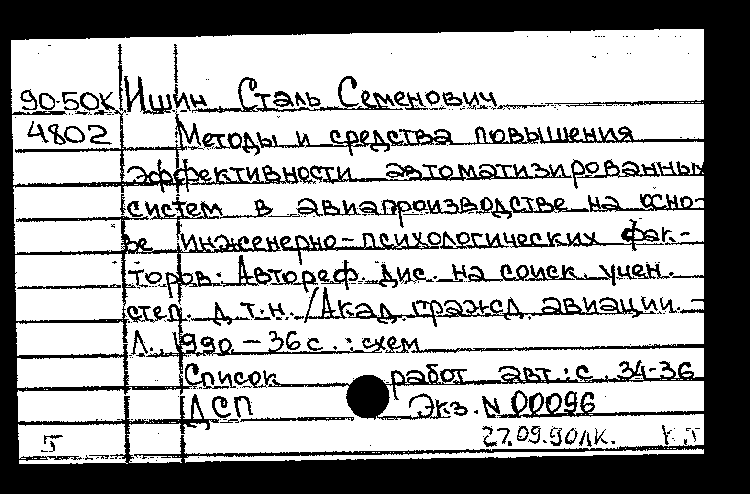 90-50К Ишин, Сталь Семенович
4802 Методы и средства повышения
эффективности автоматизированных
систем в авиапроизводстве на осно-
ве инженерно-психологических фак-
торов. Автореф. дис. на соиск. учен.
степ. д.т.н. / Акад. гражд. авиации. -
Л., 1990. - 36 с. : схем
Список работ авт.: с. 34-36
ДСП Экз. N 00096
27.09.90ЛК.